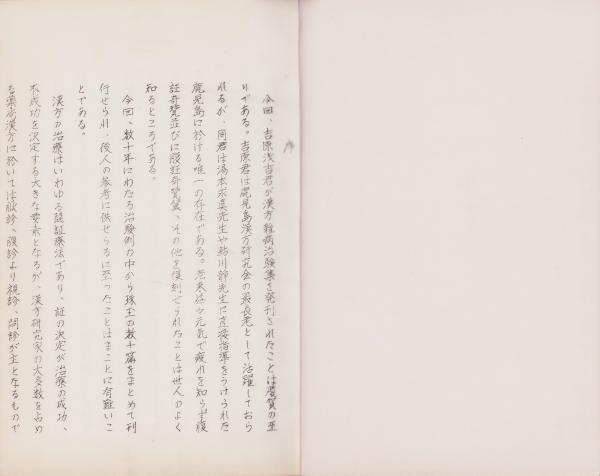 序
今回、吉原浅吉君が漢方難病治験集を発刊されたことは慶賀の至
りである。吉原君は鹿児島漢方研究会の最長老として活躍しておら
れるが、同君は湯本求真先生や鮎川静先生に直接指導をうけられた
鹿児島に於ける唯一の存在である。老来益々元気で疲れを知らず腹
証奇覧並びに腹証奇覧翼、その他を復刻せられたことは世人のよく
知るところである。
今回、数十年にわたる治験例の中から珠玉の数十篇をまとめて刊
行せられ、後人の参考に供せらるに至ったことはまことに有難いこ
とである。
漢方の治療はいわゆる随証療法であり、証の決定が治療の成功、
不成功を決定する大きな要素となるが、漢方研究家の大多数を占め
る薬局漢方に於いては脉診、腹診より視診、問診が主となるもので